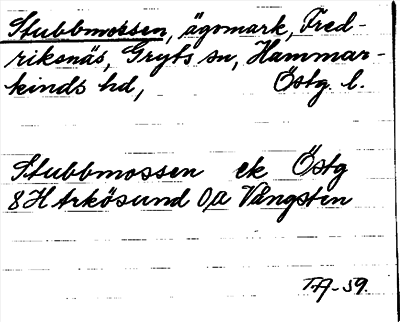 Stubbmossen, ägomark, Fred-
riksnäs, Gryts sn, Hammar-
kinds hd, Östg. l.
Stubbmossen ek Östg
8H Arkösund 0,a Vångsten
T.A-59.